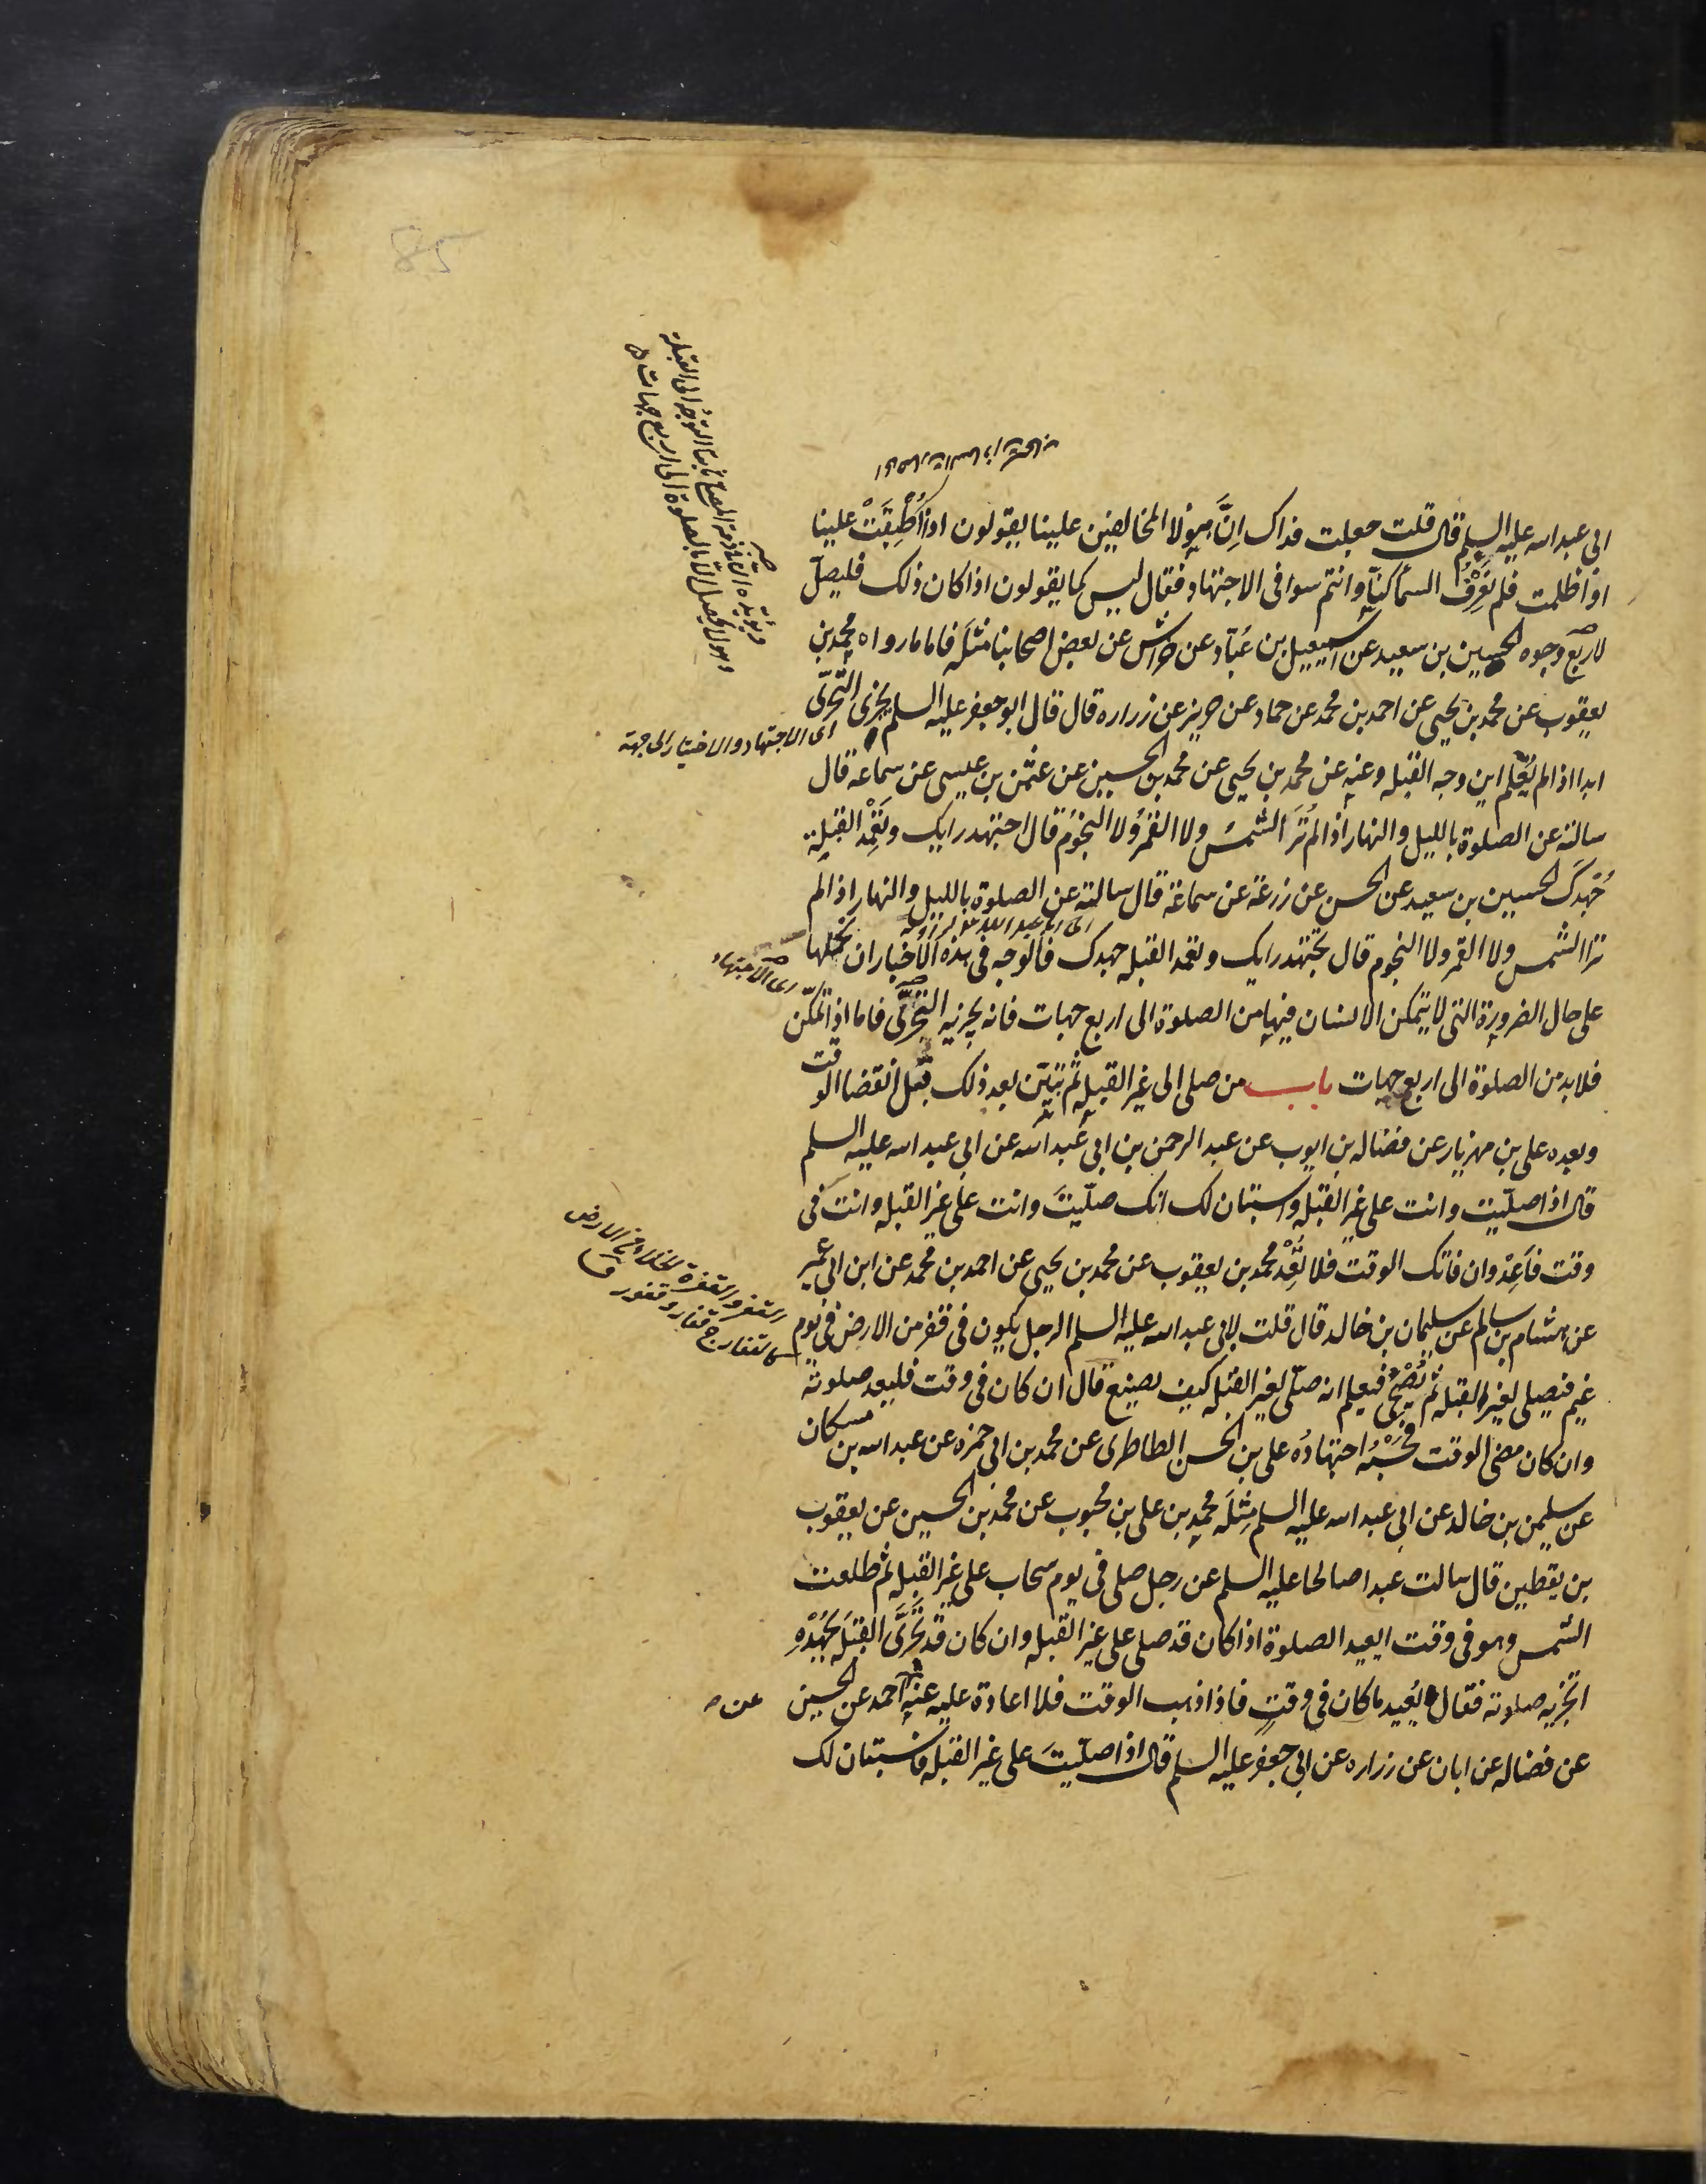 85
ابى عبد الله عليه السلم قال قلت جعلت فداك اِنَّ هؤلا المخالفين علينا يقولون اذا اُطْبِقَتْ علينا
او اظلمت فلم نَعْرِفْ السمأ كنّا وانتم سوا فى الاجتهاد فقال ليس كما يقولون اذا كان ذلك فليصلّ
لاربع وجوه الحسين بن سعيد عن اسمعيل بن عَبّاد عن خراش عن بعض اصحابنا مثله فاما ما رواه محمد بن
يعقوب عن محمد بن يحيى عن احمد بن محمد عن حماد عن حريز عن زراره قال قال ابو جعفر عليه السلم يجزى التّحرّى
اى الاجتهاد والاختيار الى جهة
ابدا اذا لم يُعْلم اين وجه القبله وعنه عن محمد بن يحيى عن محمد بن الحسين عن عثمن بن عيسى عن سماعه قال
سالته عن الصلوة بالليل والنهار اذا لم تُرَ الشمسُ ولا القمرُ ولا النجومُ قال اجتهد رايك وتَعَمَّد القبلة
جُهْدَك الحسين بن سعيد عن الحسن عن زرعة عن سماعة قال سالته عن الصلوة بالليل والنهار اذا لم
تر الشمس ولا القمر ولا النجوم قال تجتهد رايك وتعمد القبله جهدك فالوجه فى هذه الاخبار ان نحملها
اى الاجتهاد
على حال الضرورة التى لا يتمكن الانسان فيها من الصلوة الى اربع جهات فانه يجزيه التحرّى فاما اذا تمكّن
فلا بد من الصلوة الى اربع جهات باب من صلى الى غير القبله ثم تبيّن بعد ذلك قبل انقضا الوقت
وبعده على بن مهزيار عن فضاله بن ايوب عن عبد الرحمن بن ابى عبد الله عن ابى عبد الله عليه السلم
قال اذا صلّيت وانت على غير القبله واستبان لك انك صلّيتَ وانت على غير القبله وانت فى
وقت فَاَعِدْ وان فاتك الوقت فلا تُعِدْ محمد بن يعقوب عن محمد بن يحيى عن احمد بن محمد عن ابن ابى عمير
القفر والقفرة الخلاء من الارض
كالقفار ج قفار وقفور ق
عن هشام بن سالم عن سليمان بن خالد قال قلت لابى عبد الله عليه السلم الرجل يكون فى قفر من الارض فى يوم
غيم فيصلى لغير القبله ثم تُضْحِى فيعلم انه صلّى لغير القبله كيف يصنع قال ان كان فى وقت فليعد صلوته
وان كان مضى الوقت فحَسْبُهُ اجتهادُه على بن الحسن الطاطرى عن محمد بن ابى حمزه عن عبد الله بن مسكان
عن سليمن بن خالد عن ابى عبد الله عليه السلم مِثلَه محمد بن على بن محبوب عن محمد بن الحسين عن يعقوب
بن يقطين قال سالت عبدا صالحا عليه السلم عن رجل صلى فى يوم سحاب على غير القبله ثم طلعت
الشمس وهو فى وقت ايعيد الصلوة اذا كان قد صلى على غير القبله وان كان قد تَحَرَّى القبلَه بجُهْدِه
اتجزيه صلوته فقال يُعيد ما كان فى وقتٍ فاذا ذهب الوقت فلا اعادة عليه عنه احمد عن الحسين
عن فضاله عن ابان عن زراره عن ابى جعفر عليه السلم قال اذا صلّيتَ على غير القبله فاستبان لك